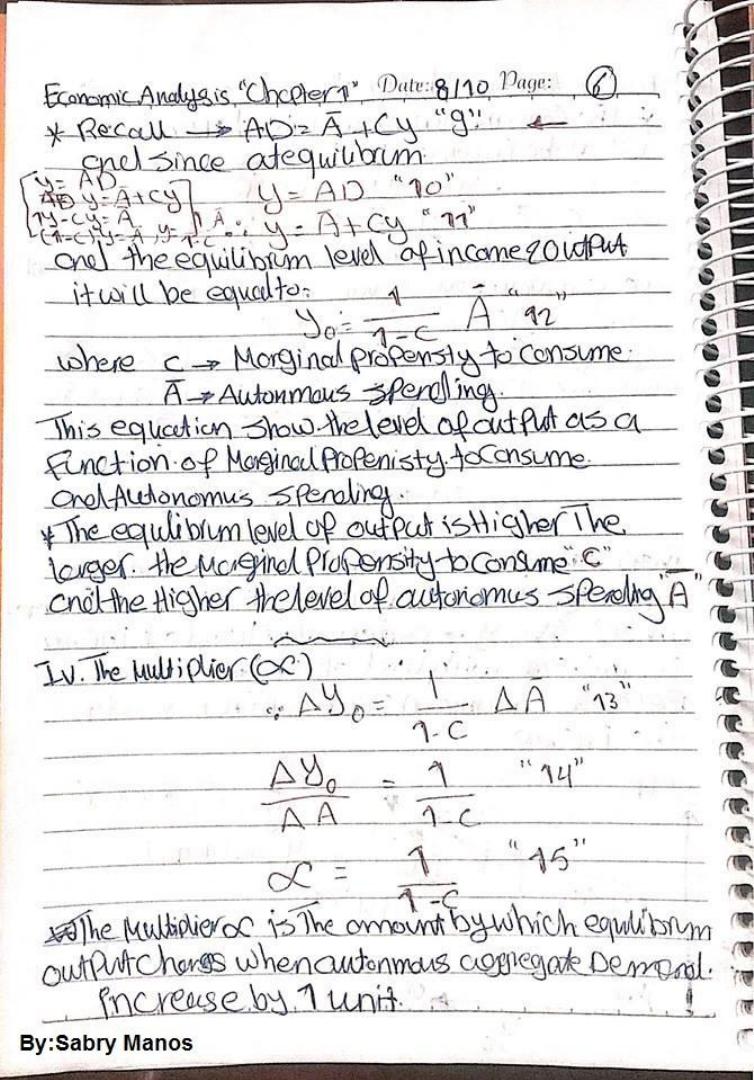 Economic Analysis "Chapter1" Date: 8/10 Page: 6
* Recall → AD = Ā + Cy "9" ←
and since at equilibrum
y = AD
AD y = Ā + Cy
1y - Cy = Ā
(1-C) y = Ā , y = 1/1-C Ā
y = AD "10"
∴ y = Ā + Cy "11"
and the equilibrium level of income & output
it will be equal to:
y₀ = 1/1-C Ā "12"
where C → Marginal propensty to consume.
Ā → Autonmous spending.
This equation show the level of output as a
function of Marginal Propenisty to consume
and Autonomus spending.
* The equlibrum level of output is Higher The
larger. the Marginal Propensity to consume "C"
and the Higher the level of autonomus spending "Ā"
Iv. The Multiplier (∝)
∴ ΔY₀ = 1/1-C ΔĀ "13"
ΔY₀/ΔA = 1/1-C "14"
∝ = 1/1-C "15"
The Multiplier ∝ is The amount by which equlibrum
output changs when autonmous aggregate Demand.
increase by 1 unit.
By:Sabry Manos